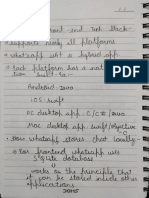 front end and tech stack
→ supports nearly all platforms
→ whatsapp isn't a hybrid app
→ each platform has a native
built to
Android - Java
iOS - swift
PC desktop app - C/C#/Java
Mac desktop app swift/objective
→ How whatsapp stores chat locally
→ For frontend whatsapp uses
SQLite database
↓
works on the principle that
it can be stored inside other
applications